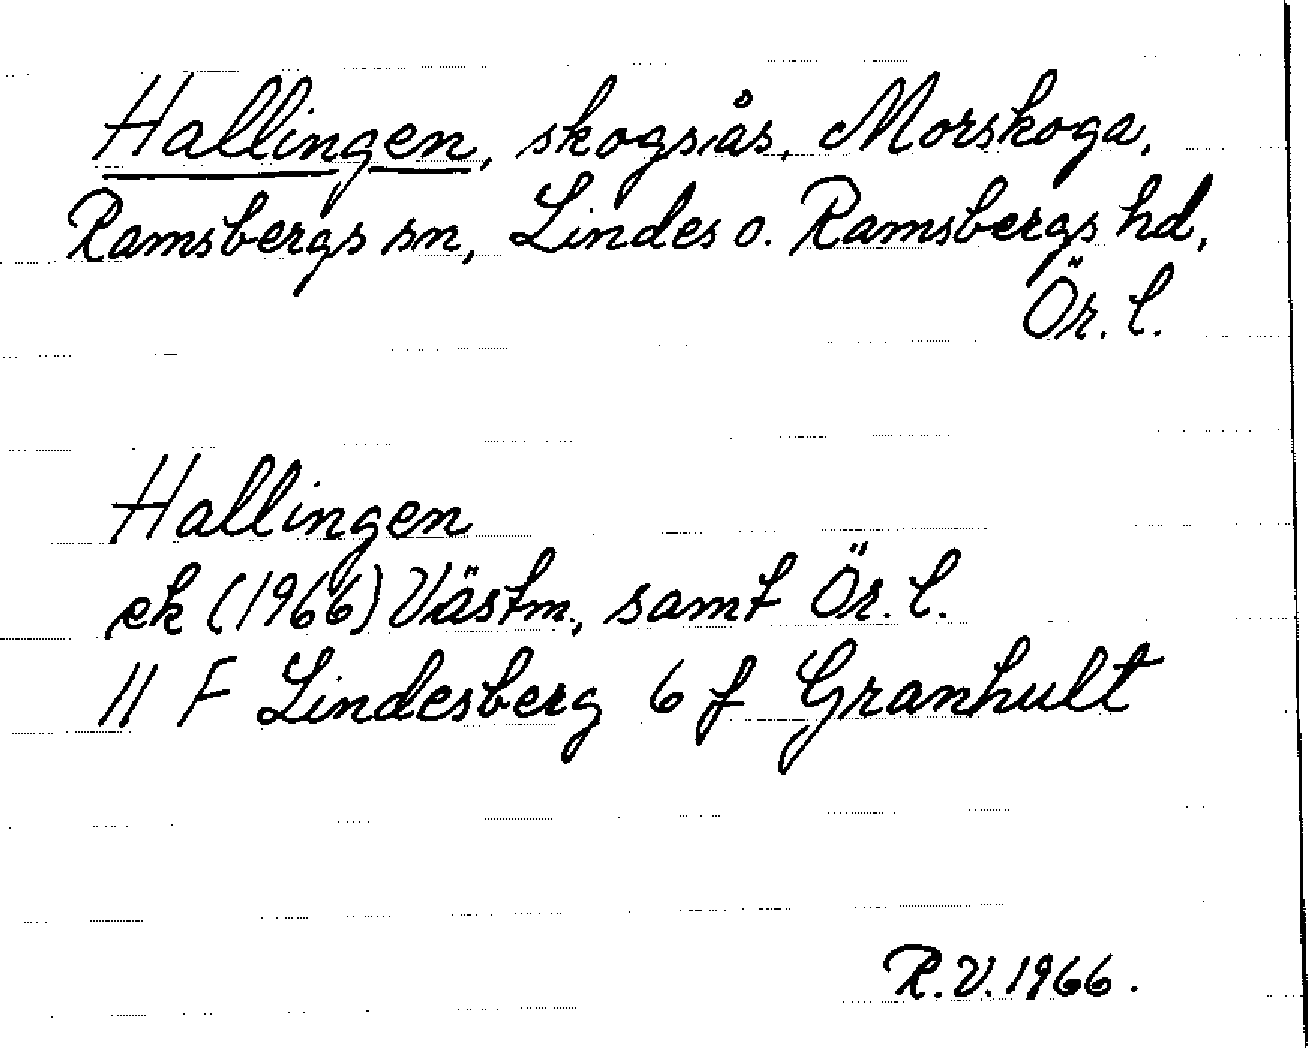 Hallingen, skogsås, Morskoga,
Ramsbergs sn, Lindes o. Ramsbergs hd,
Ör. l.
Hallingen
ek (1966) Västm., samt Ör. l.
11 F Lindesberg 6 f Granhult
R.V. 1966.